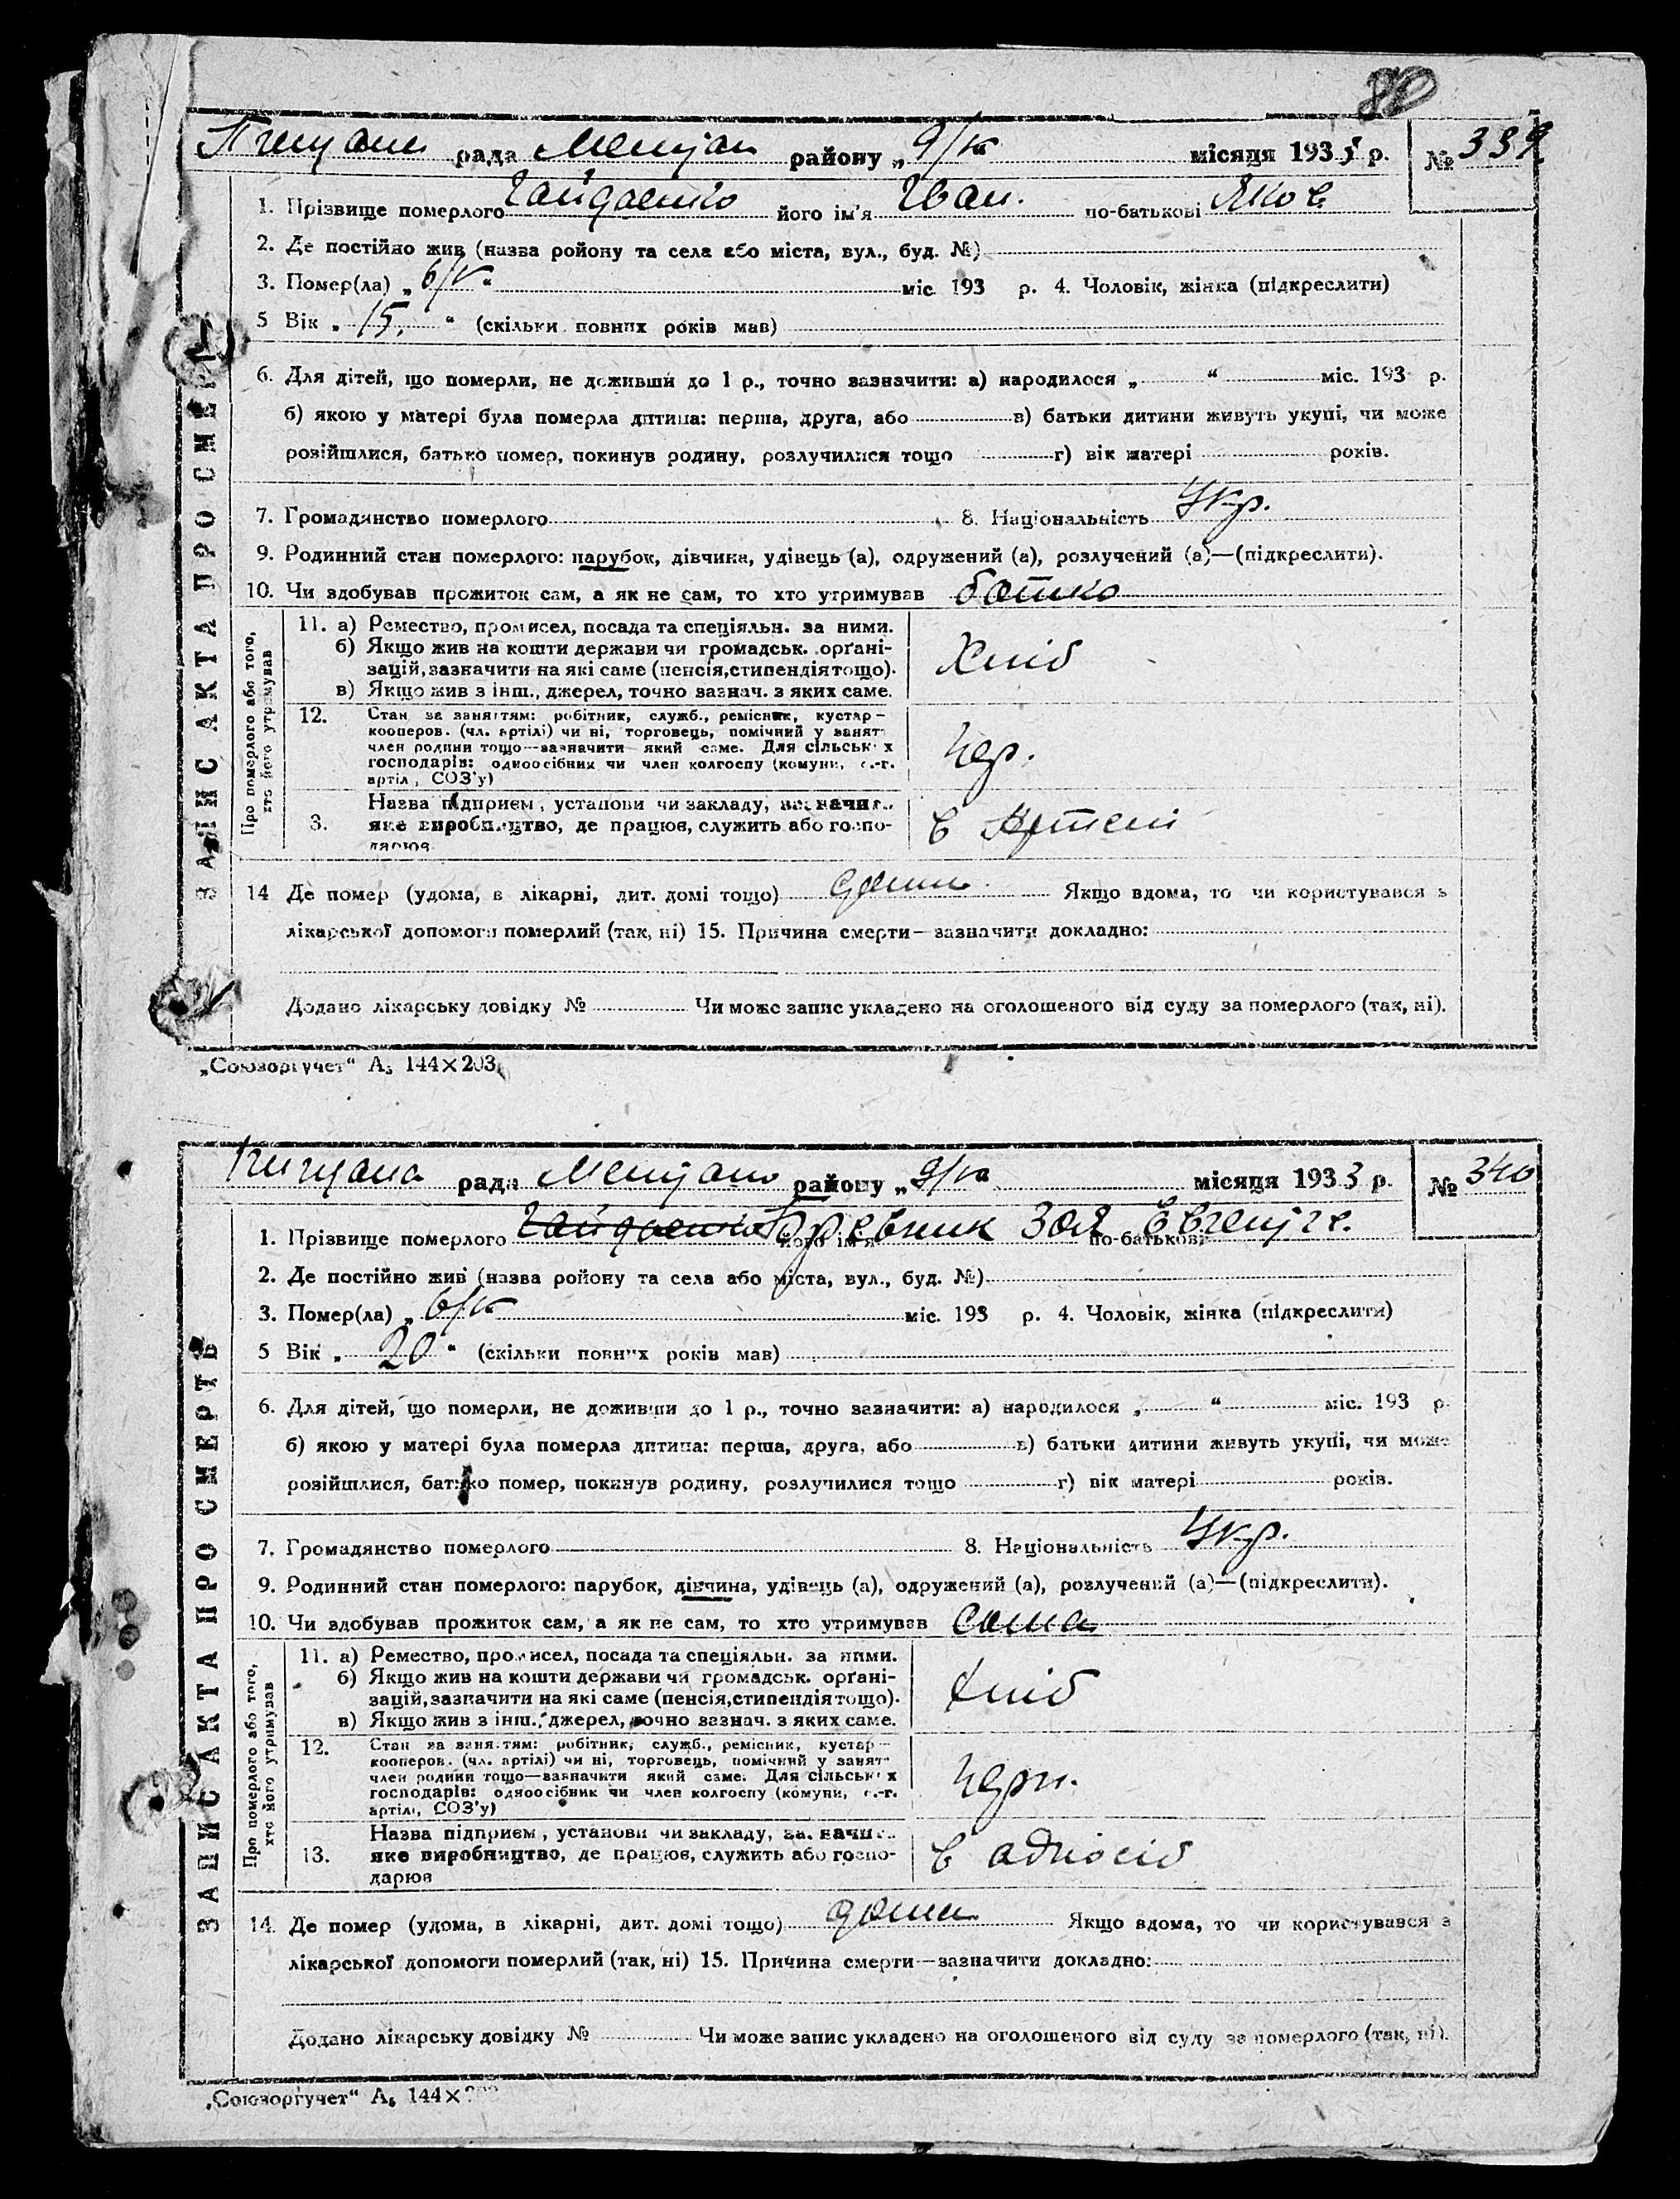 80
рада району „ 9/V “ місяця 1933 р. № 339
1. Прізвище померлого Гайдаенко його ім'я Іван. по-батькові Яков.
2. Де постійно жив (назва ройону та села або міста, вул., буд. №)
3. Помер(ла) „ 6/V “ міс. 193 р. 4. Чоловік, жінка (підкреслити)
5 Вік „ 15. “ (скільки повних років мав)
6. Для дітей, що померли, не доживши до 1 р., точно зазначити: а) народилося „ “ міс. 193 р.
б) якою у матері була померла дитина: перша, друга, або в) батьки дитини живуть укупі, чи може
розійшлися, батько помер, покинув родину, розлучилися тощо г) вік матері років.
7. Громадянство померлого 8. Національність Укр.
9. Родинний стан померлого: парубок, дівчина, удівець (а), одружений (а), розлучений (а)—(підкреслити).
10. Чи здобував прожиток сам, а як не сам, то хто утримував батько
ЗАПИС АКТА ПРО СМЕРТЬ
Про померлого або того, хто його утримував
11. а) Ремество, промисел, посада та спеціяльн. за ними.
б) Якщо жив на кошти держави чи громадськ. орґані-
зацій, зазначити на які саме (пенсія, стипендія тощо).
в) Якщо жив з інш., джерел, точно зазнач. з яких саме.
Хліб
12. Стан за заняттям: робітник, служб., ремісник, кустар—
кооперов. (чл. артілі) чи ні, торговець, помічний у занят
член родини тощо—зазначити який саме. Для сільських
господарів: одноосібник чи член колгоспу (комуни, с.-г.
артіл, СОЗ'у)
3. Назва підприєм, установи чи закладу, зазначит.
яке виробництво, де працюв, служить або госпо-
дарюв
в Артелі
14 Де помер (удома, в лікарні, дит. домі тощо) дома Якщо вдома, то чи користувався з
лікарської допомоги померлий (так, ні) 15. Причина смерти—зазначити докладно:
Додано лікарську довідку № Чи може запис укладено на оголошеного від суду за померлого (так, ні).
„Союзоргучет“ А₅ 144×203
рада району „ 9/V “ місяця 1933 р. № 340
1. Прізвище померлого Гайдаенко його ім'я Зоя по-батькові
2. Де постійно жив (назва ройону та села або міста, вул., буд. №)
3. Помер(ла) „ 6/V міс. 193 р. 4. Чоловік, жінка (підкреслити)
5 Вік „ 20 “ (скільки повних років мав)
6. Для дітей, що померли, не доживши до 1 р., точно зазначити: а) народилося „ “ міс. 193 р.
б) якою у матері була померла дитина: перша, друга, або в) батьки дитини живуть укупі, чи може
розійшлися, батько помер, покинув родину, розлучилися тощо г) вік матері років.
7. Громадянство померлого 8. Національність Укр.
9. Родинний стан померлого: парубок, дівчина, удівець (а), одружений (а), розлучений (а)—(підкреслити).
10. Чи здобував прожиток сам, а як не сам, то хто утримував сама
ЗАПИС АКТА ПРО СМЕРТЬ
Про померлого або того, хто його утримував
11. а) Ремество, промисел, посада та спеціяльн. за ними.
б) Якщо жив на кошти держави чи громадськ. орґані-
зацій, зазначити на які саме (пенсія, стипендія тощо).
в) Якщо жив з інш., джерел, точно зазнач. з яких саме.
Хліб
12. Стан за заняттям: робітник, служб., ремісник, кустар—
кооперов. (чл. артілі) чи ні, торговець, помічний у занят
член родини тощо—зазначити який саме. Для сільських
господарів: одноосібник чи член колгоспу (комуни, с.-г.
артілі, СОЗ'у)
13. Назва підприєм, установи чи закладу, зазначит.
яке виробництво, де працюв, служить або госпо-
дарюв
в односіб
14. Де помер (удома, в лікарні, дит. домі тощо) дома Якщо вдома, то чи користувався з
лікарської допомоги померлий (так, ні) 15. Причина смерти—зазначити докладно:
Додано лікарську довідку № Чи може запис укладено на оголошеного від суду за померлого (так, ні).
„Союзоргучет“ А₅ 144×